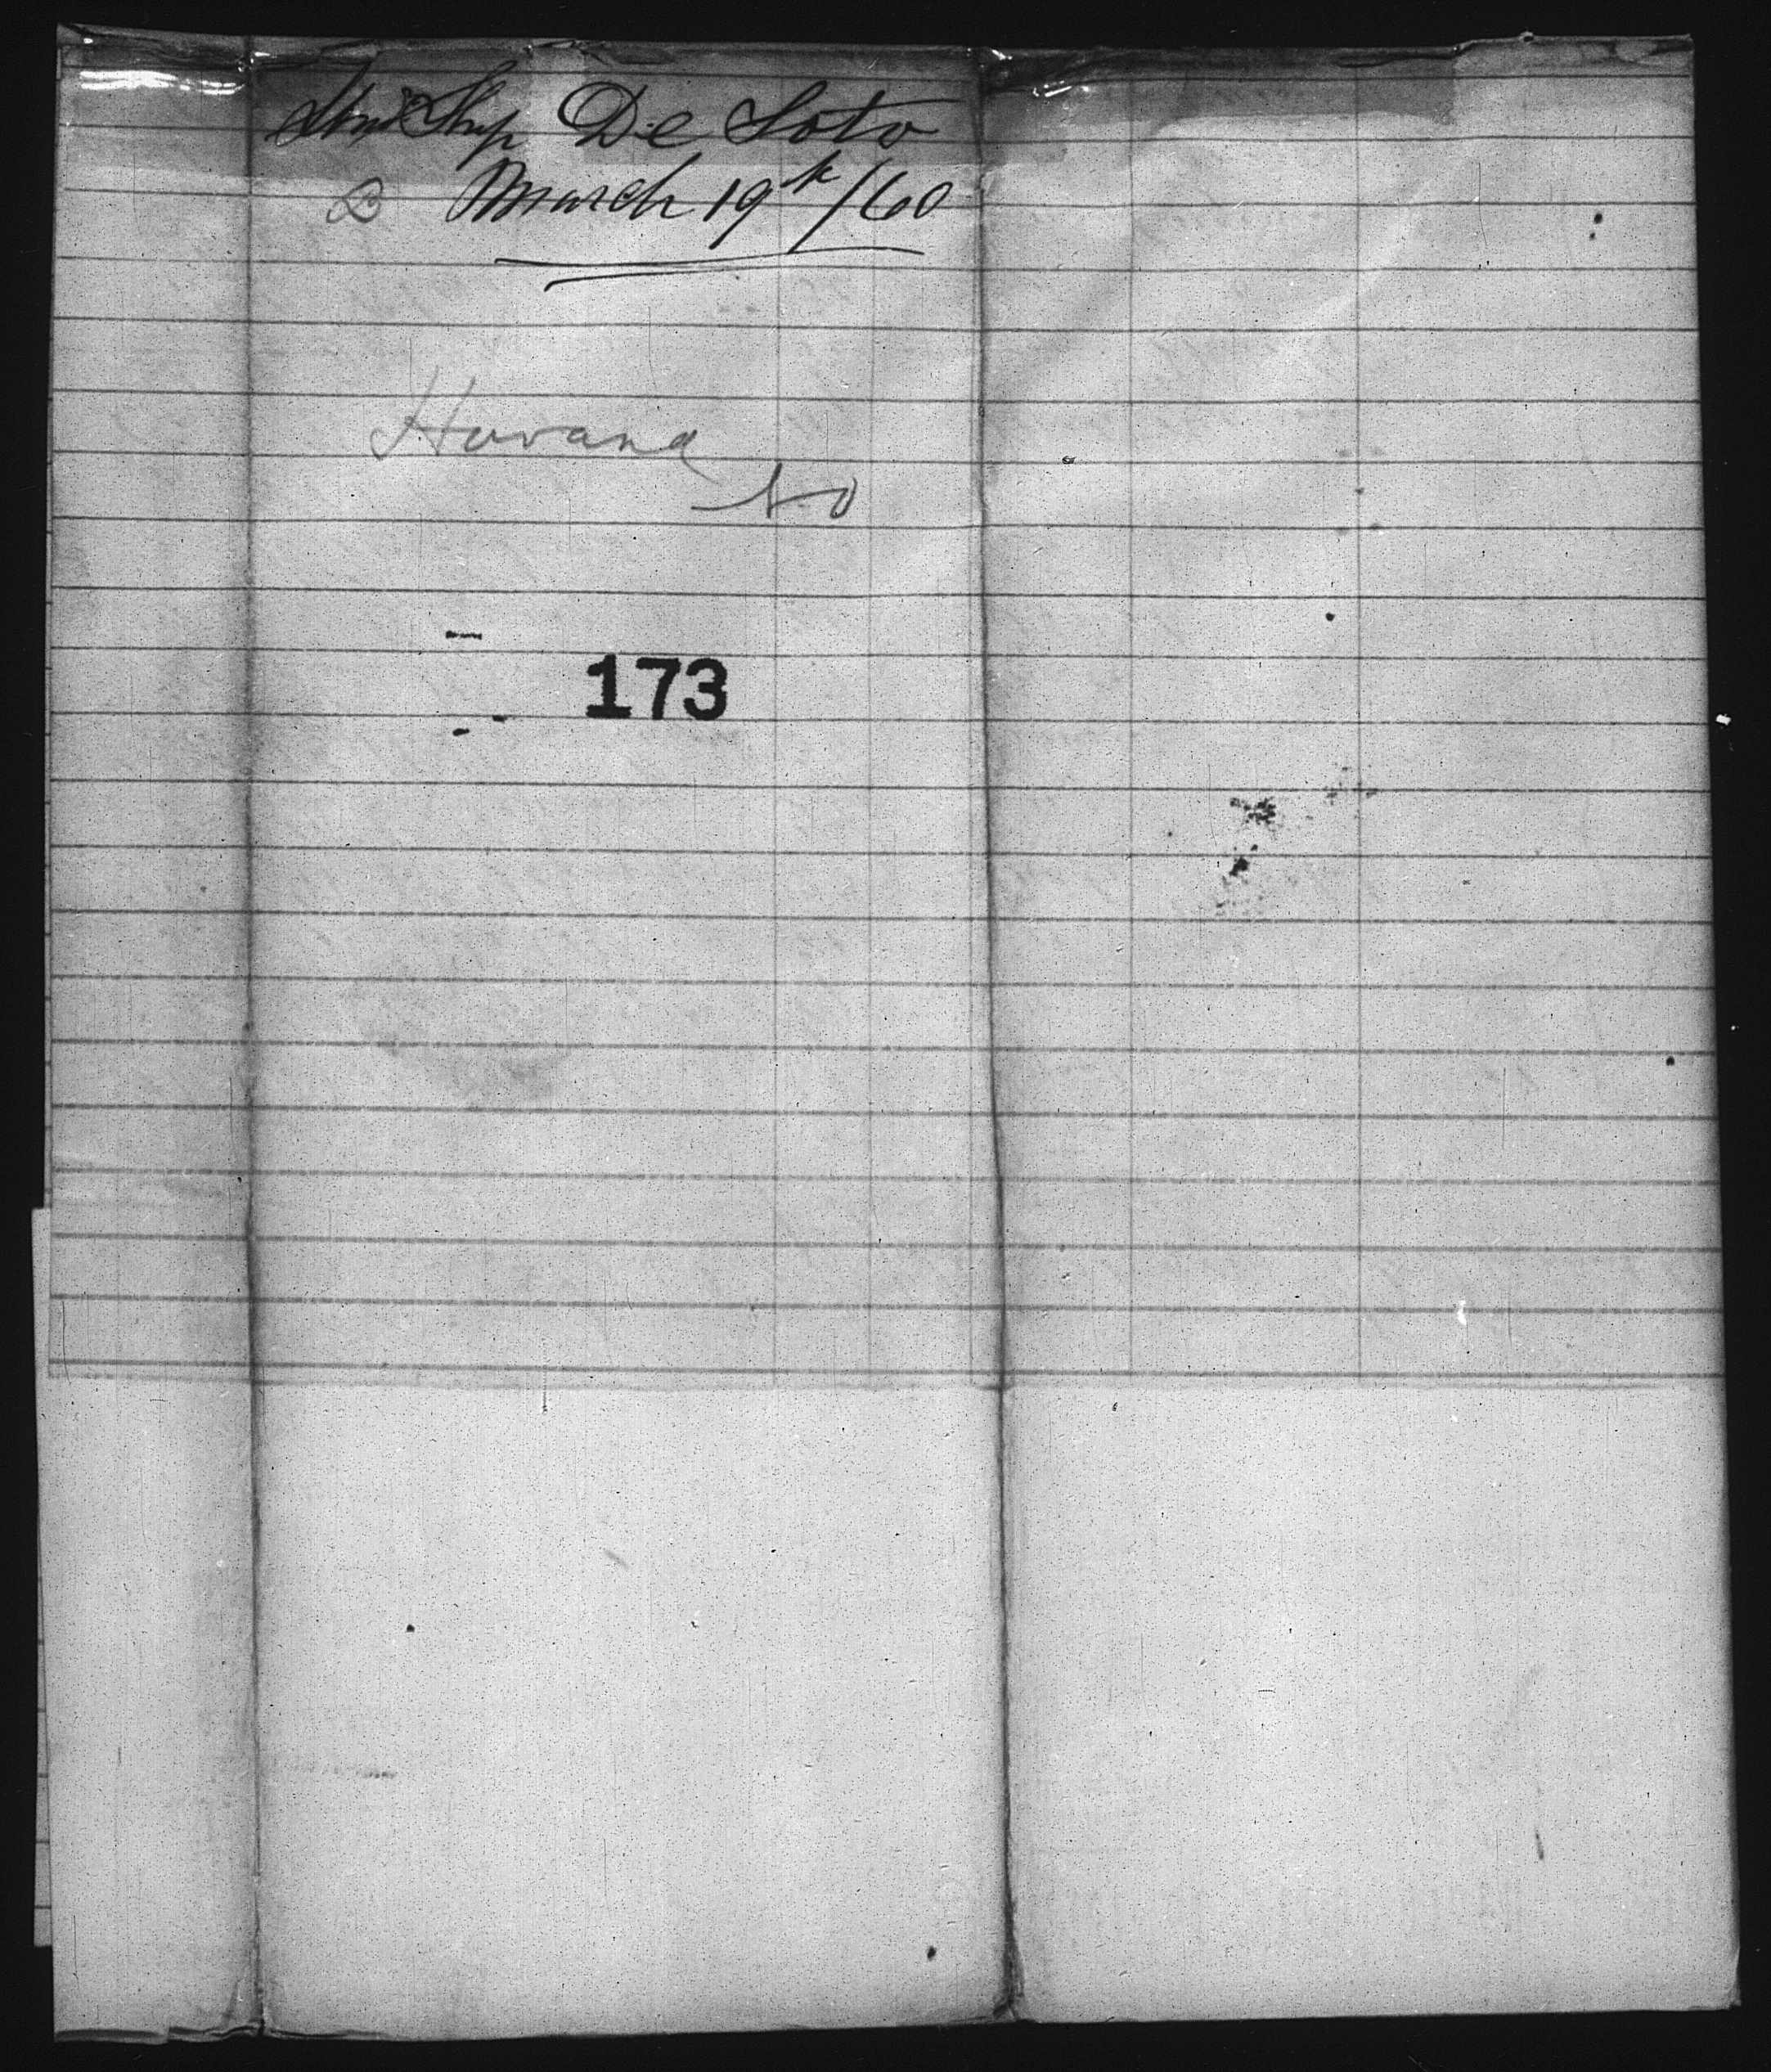 Stm Ship De Soto
March 19th/60
Havana
N.O
173